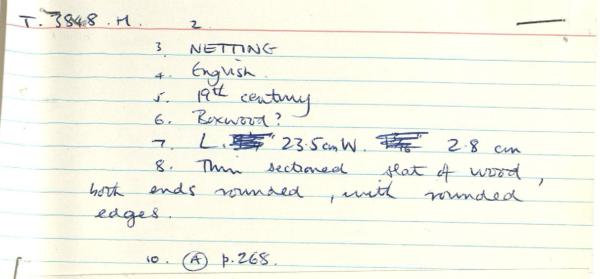 T. 3848. M. 2
3. NETTING
4. English.
5. 19th century
6. Boxwood?
7. L. 23.5cm W. 2.8 cm
8. Thin sectioned slat of wood,
both ends rounded, with rounded
edges.
10. A p.268.